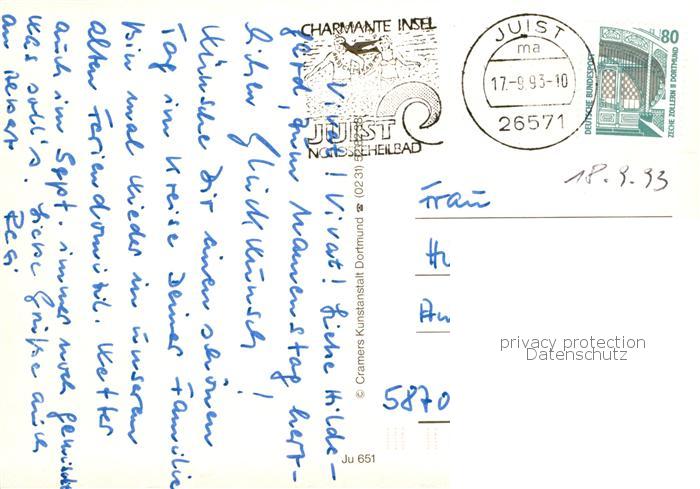 CHARMANTE INSEL
JUIST
NORDSEEHEILBAD
JUIST
ma
17.-9.93-10
26571
80
DEUTSCHE BUNDESPOST
ZECHE ZOLLERN II DORTMUND
18.9.93
Vivat! Vivat! Liebe Hilde-
gard, zum Namenstag herz-
lichen Glückwunsch!
Wünsche Dir einen schönen
Tag im Kreise Deiner Familie!
Bin mal wieder in unserem
alten Feriendomizil. Wetter
auch im Sept. immer noch gemischt
was soll's. Liebe Grüße auch
an
© Cramers Kunstanstalt Dortmund ☎ (0231)
Ju 651
Frau
5870
privacy protection
Datenschutz